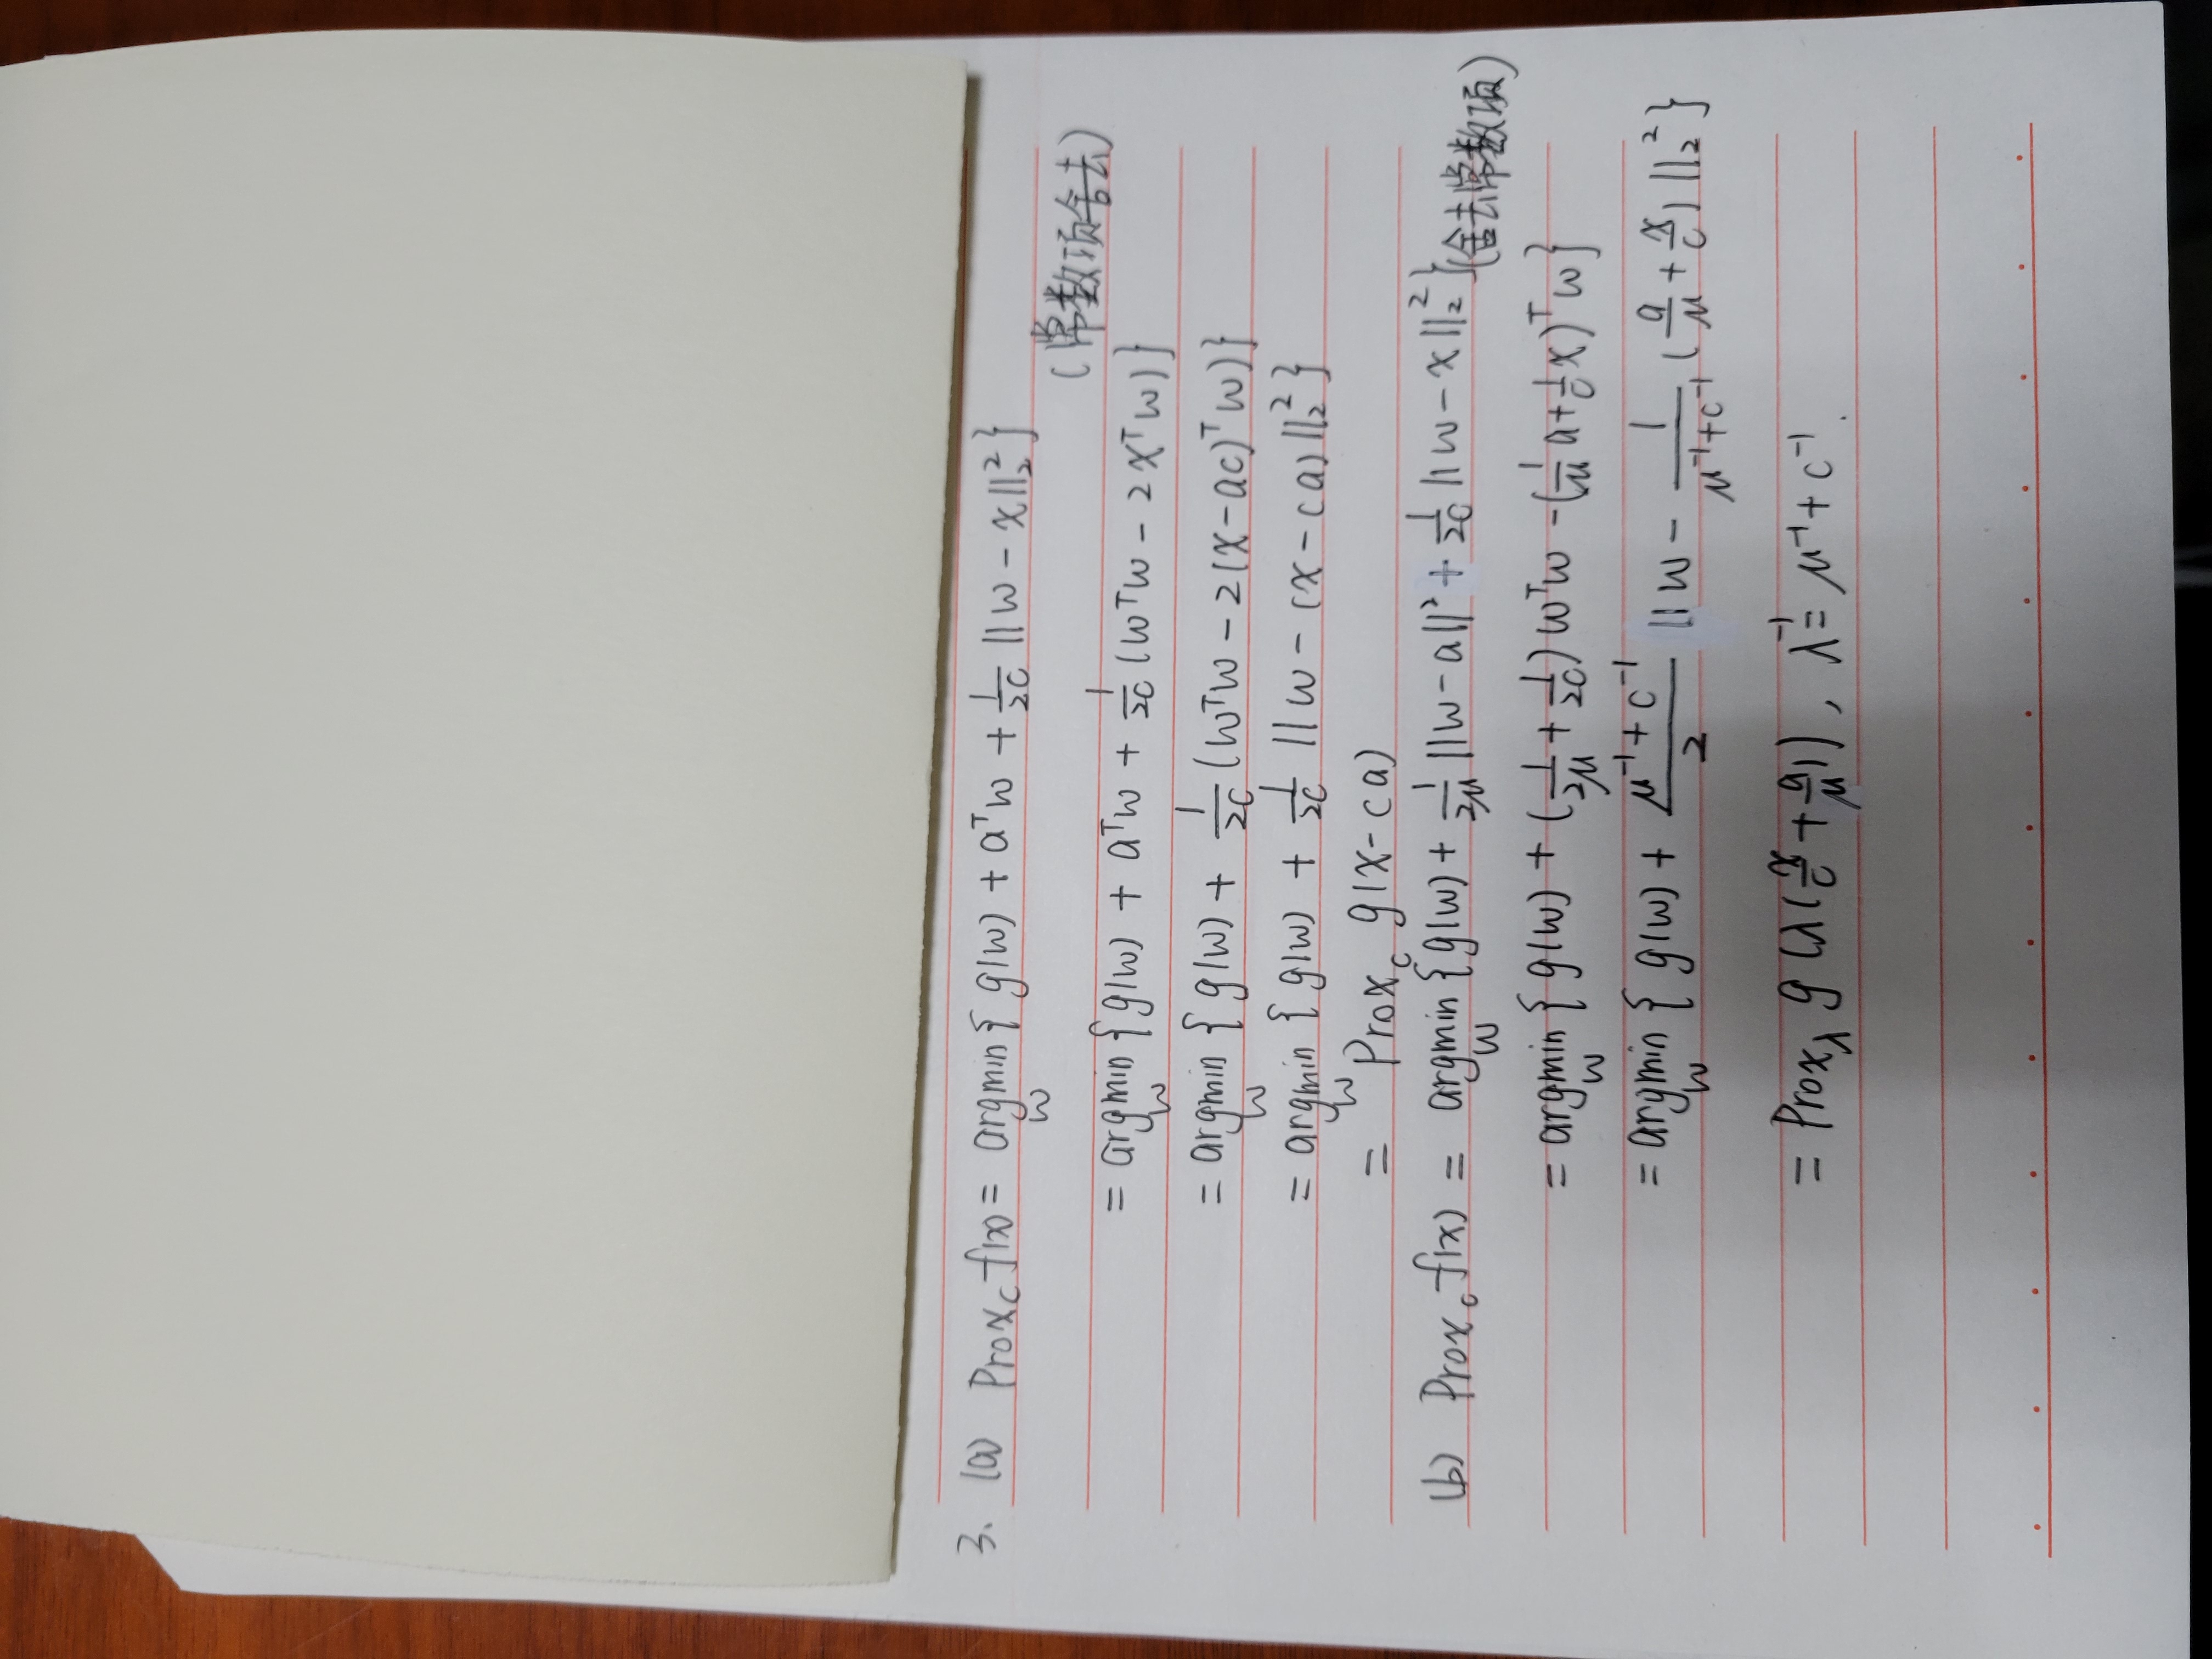 3. (a) Proxc f(x) = argmin_w { g(w) + aᵀw + 1/2c ||w - x||₂² }
(常数项舍去)
= argmin_w { g(w) + aᵀw + 1/2c (wᵀw - 2xᵀw) }
= argmin_w { g(w) + 1/2c (wᵀw - 2(x-ac)ᵀw) }
= argmin_w { g(w) + 1/2c ||w - (x-ca)||₂² }
= Proxc g(x-ca)
(b) Proxc f(x) = argmin_w { g(w) + 1/2μ ||w-a||² + 1/2c ||w-x||₂² } (舍去常数项)
= argmin_w { g(w) + (1/2μ + 1/2c) wᵀw - (1/μ a + 1/c x)ᵀ w }
= argmin_w { g(w) + (μ⁻¹+c⁻¹)/2 ||w - 1/(μ⁻¹+c⁻¹) (a/μ + x/c)||₂² }
= Proxλ g(λ(x/c + a/μ)), λ⁻¹ = μ⁻¹ + c⁻¹.